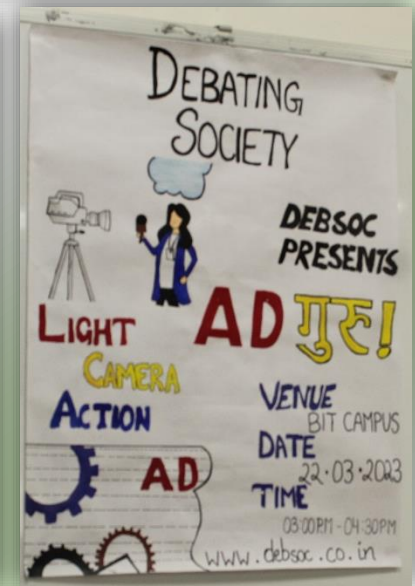 DEBATING
SOCIETY
DEBSOC
PRESENTS
AD गुरु!
LIGHT
CAMERA
ACTION
VENUE
BIT CAMPUS
DATE
22.03.2023
TIME
03:00PM - 04:30PM
AD
www.debsoc.co.in